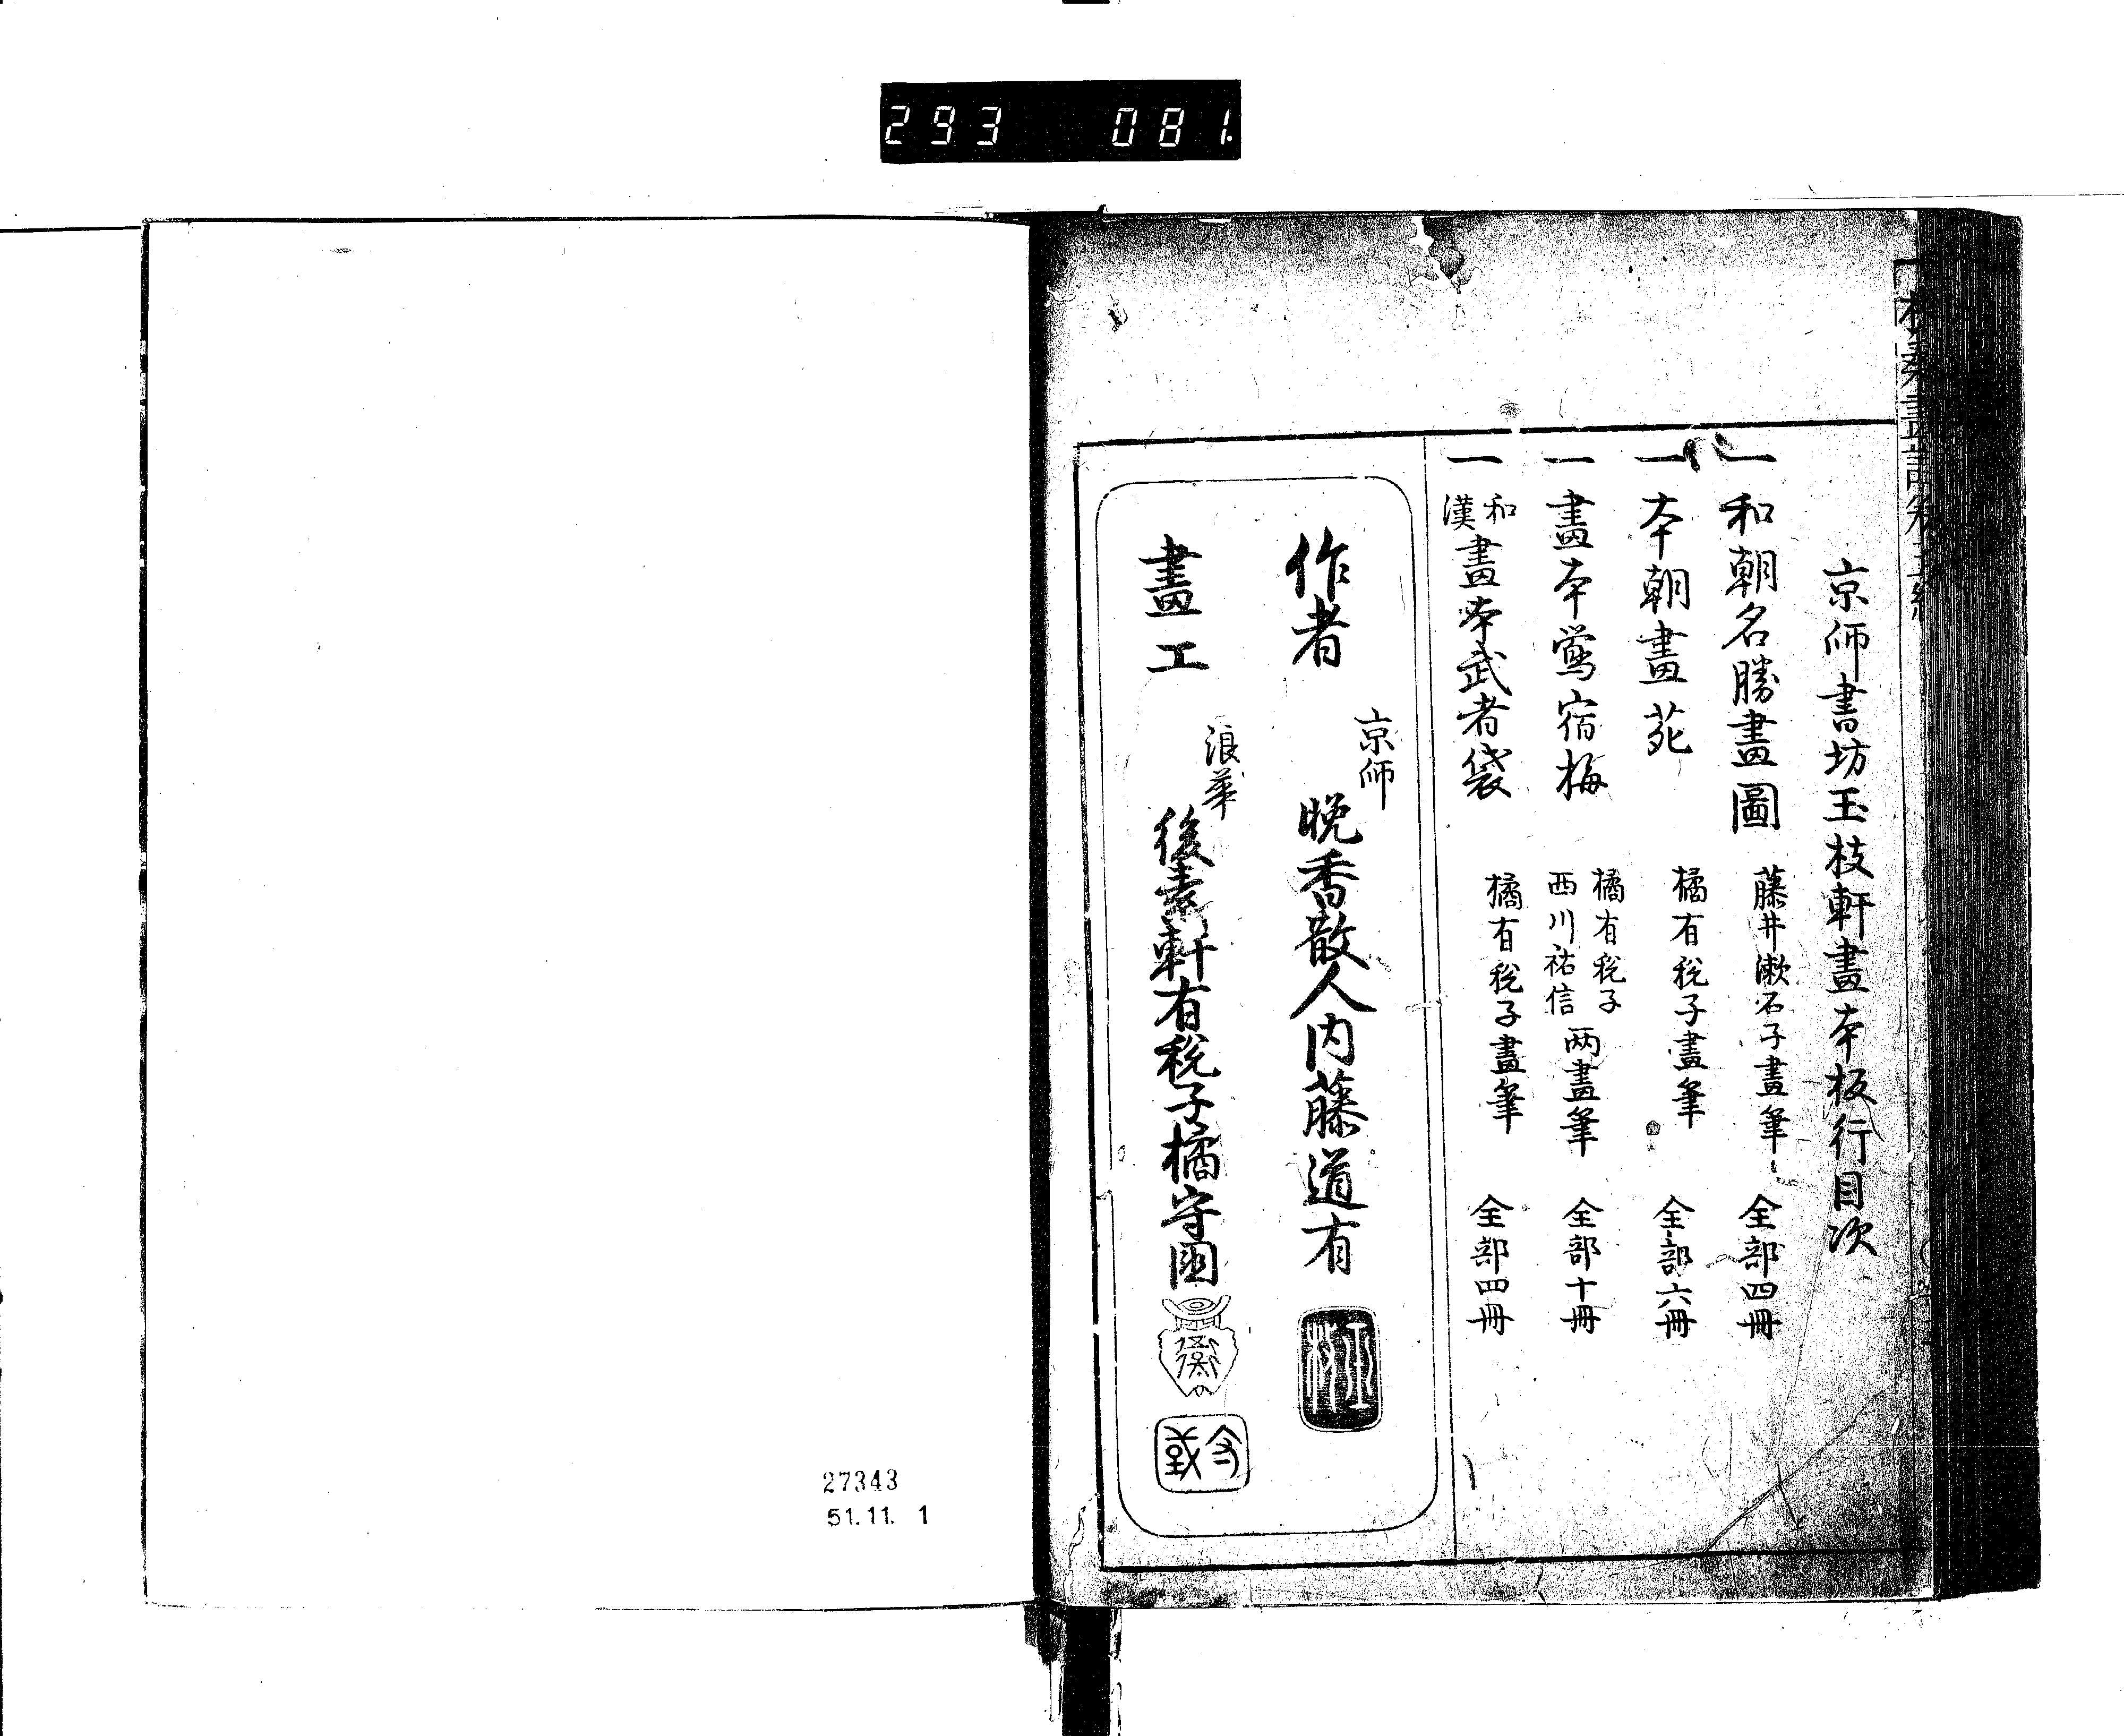 293 081
京師書坊玉枝軒畫本板行目次
一 和朝名勝畫圖 藤井漱石子畫筆 全部四冊
一 本朝畫苑 橘有稅子畫筆 全部六冊
一 畫本鶯宿梅 橘有稅子 西川祐信 两畫筆 全部十冊
一 和漢畫本武者袋 橘有稅子畫筆 全部四冊
作者 京師 晩香散人内藤道有
畫工 浪華 後素軒有稅子橘守国
27343
51.11. 1